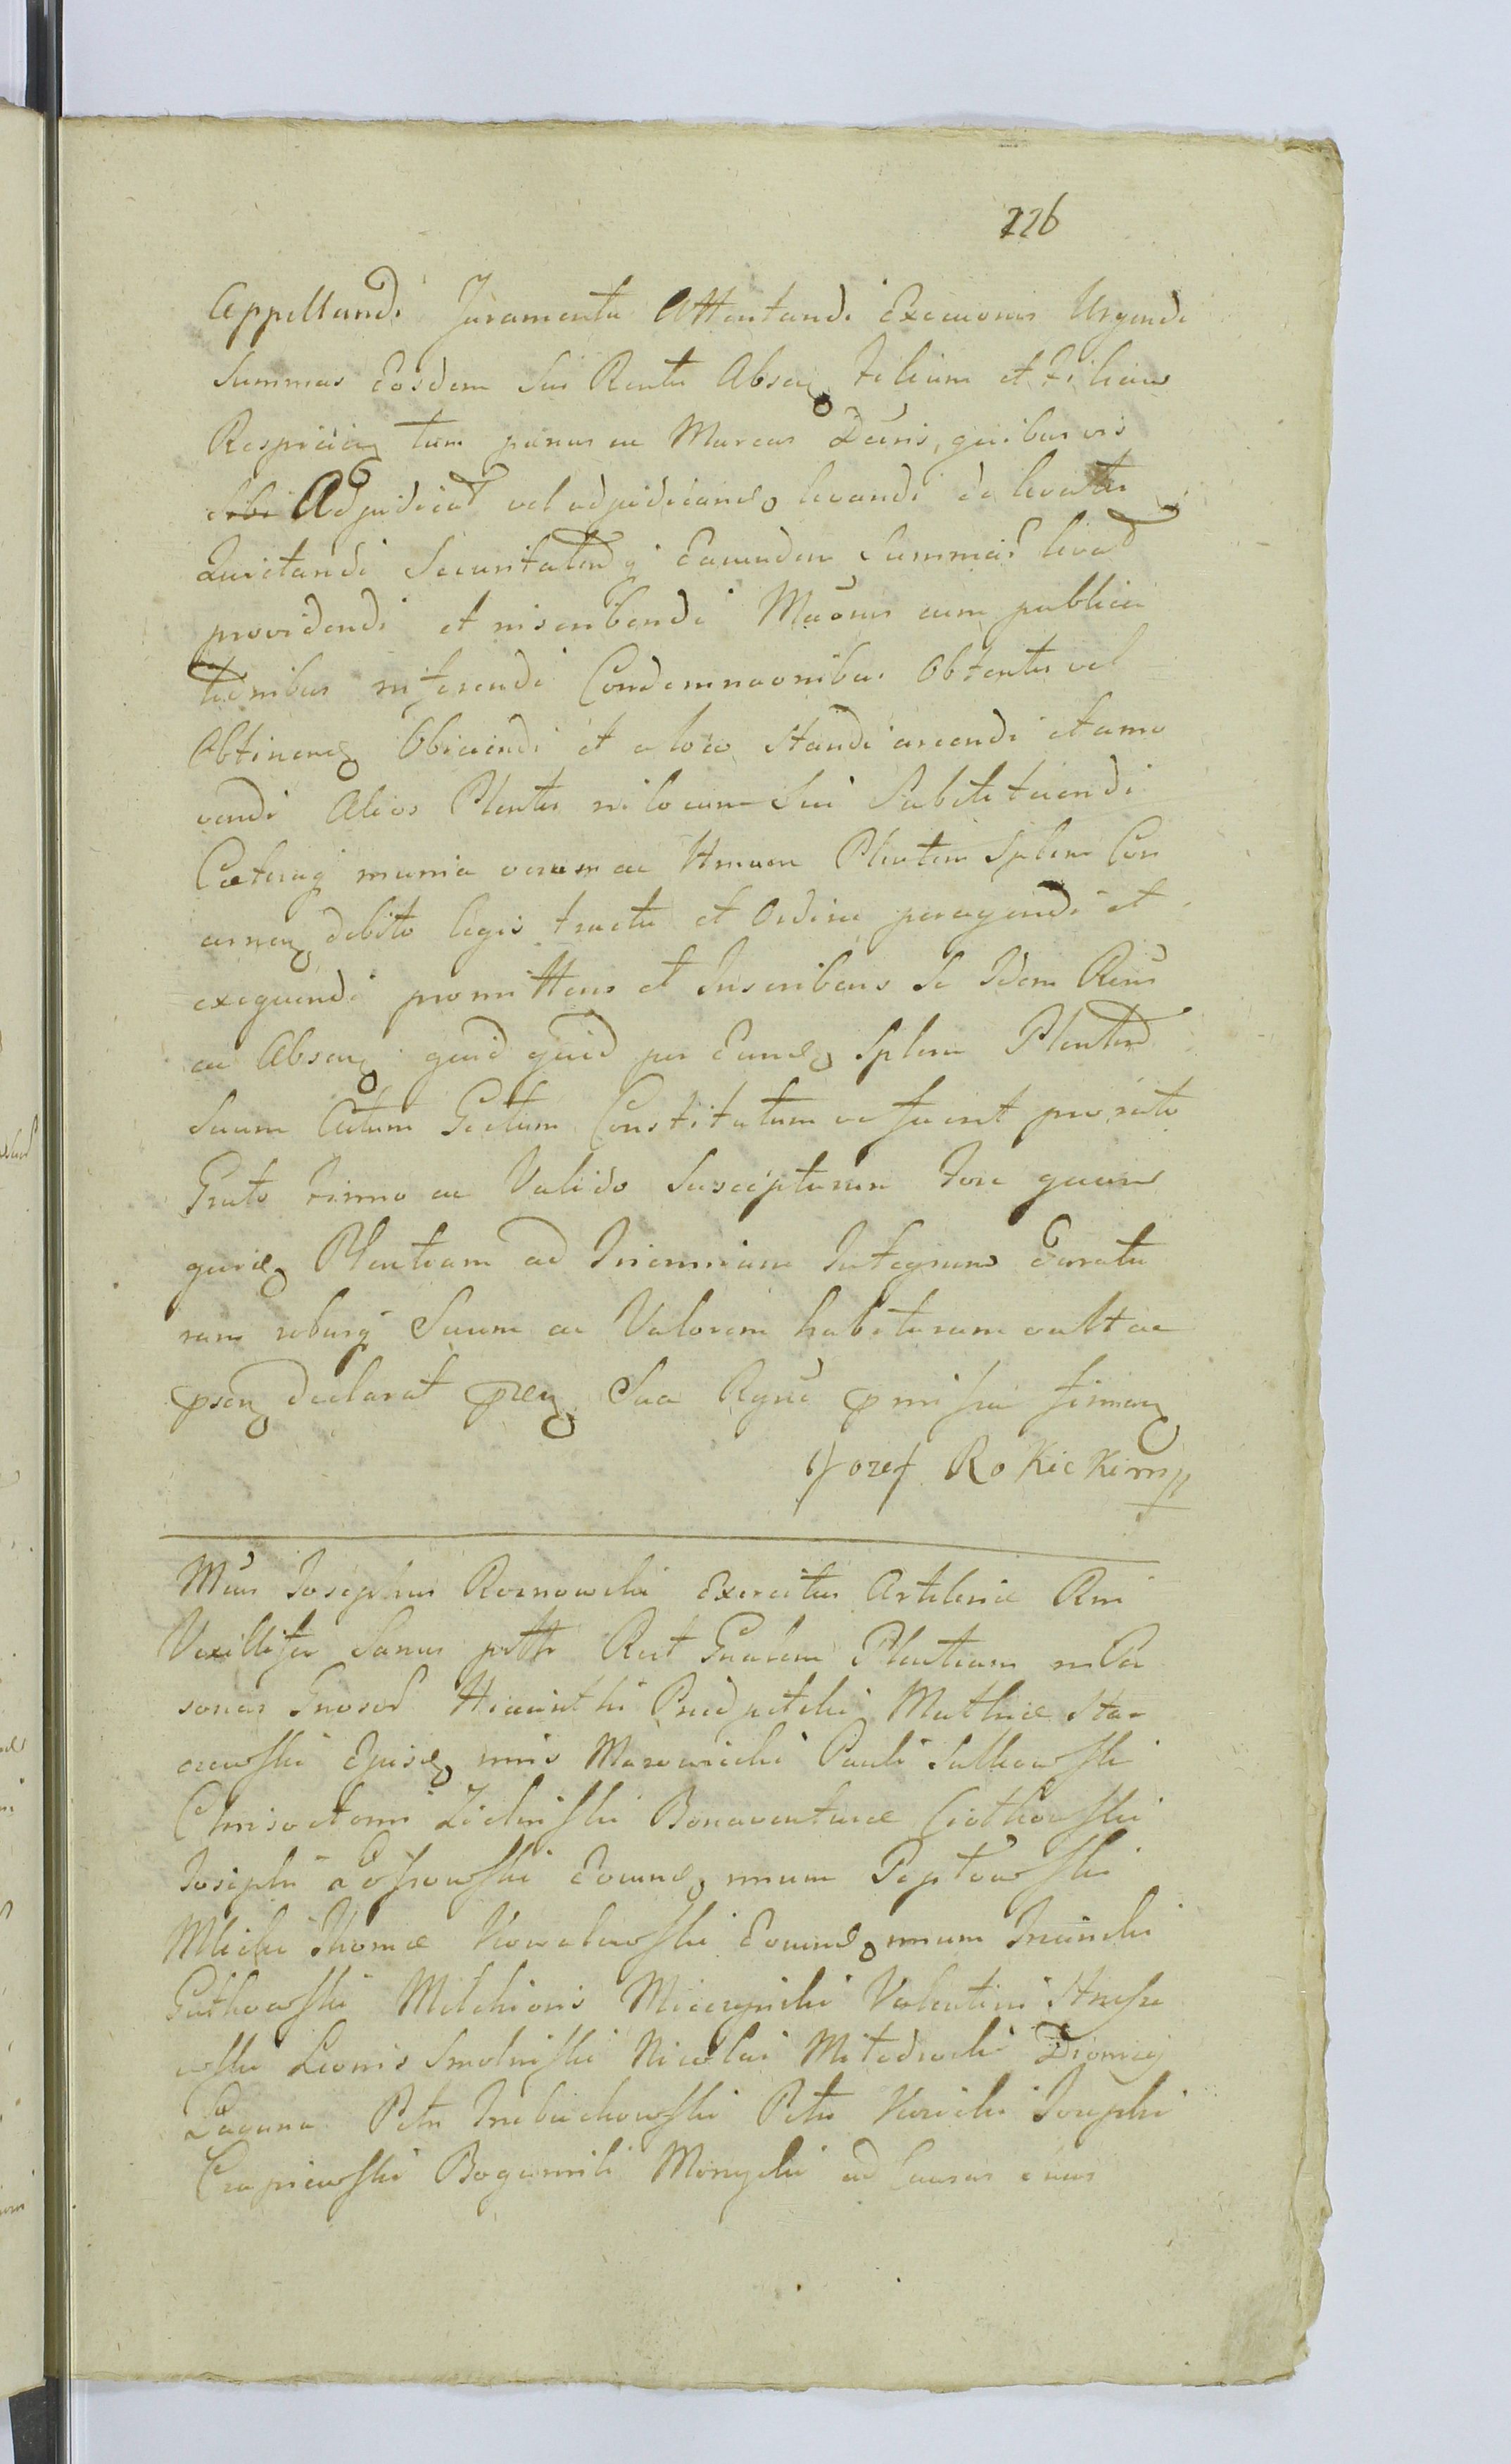 226
Appellandi Juramenta Attentandi Execuonis Urgendi
Summas Eosdem sui Rentes Absenq filium et filiam
Respicien tum pænas ac Marcas Dćris, quibusvis
sibi Adjudicat vel adjudicand levandi de levatis
Quietandi Securitatend Earundem Summar levat
providendi et inscribendi Maōnes cum publica
tionibus inferendi Condemnaonibus Obtentis vel
Obtinend Obiiciendi et a loco Standi arcendi et amo
vendi Alios Plentes in locum Sui Substituendi
Cæteraq munia verum ac Unum Plentem Splem Con
cernen debito legis tractu et Ordine peragendi et
exequendi promittens et Inscribens Se Idem Rens
ac Absen quid quid per Eund Splem Plentem
Suum Actum Gestum Constitutumve fuerit pro rato
Grato firmo ac Valido Suscepturum fore quam
quid Plentiam ad Triennium Integrum Duratu
ram roburq Suum ac Valorem habituram vult ac
psen declarat Sua Rgne pmissa firman
Jozef Rokicki mp
Mcus Josephus Rosnowski Exercitus Artileriæ Rni
Vexillifer Sanus ptte Rect Gnalem Plentiam in Per
sonas Gnosor Hiacinthi Przedpelski Mathiæ Sta-
czewski Ejusd mnis Mazowiecki Pauli Sulkowski
Chrisostomi Zielinski Bonaventuræ Ciotkowski
Josephi Lossowski Eorund mnum Peptowski
Mlicki Thomæ Kowalewski Eorund mnum Trzcinski
Gutkowski Melchioris Mierzynski Valentini Strusze
wski Leonis Smolinski Nicolai Mitedrocki Dionisij
Laguna Petri Trzebuchowski Petri Kozicki Josephi
Czapiewski Bogumili Monycki ad Causas Suas